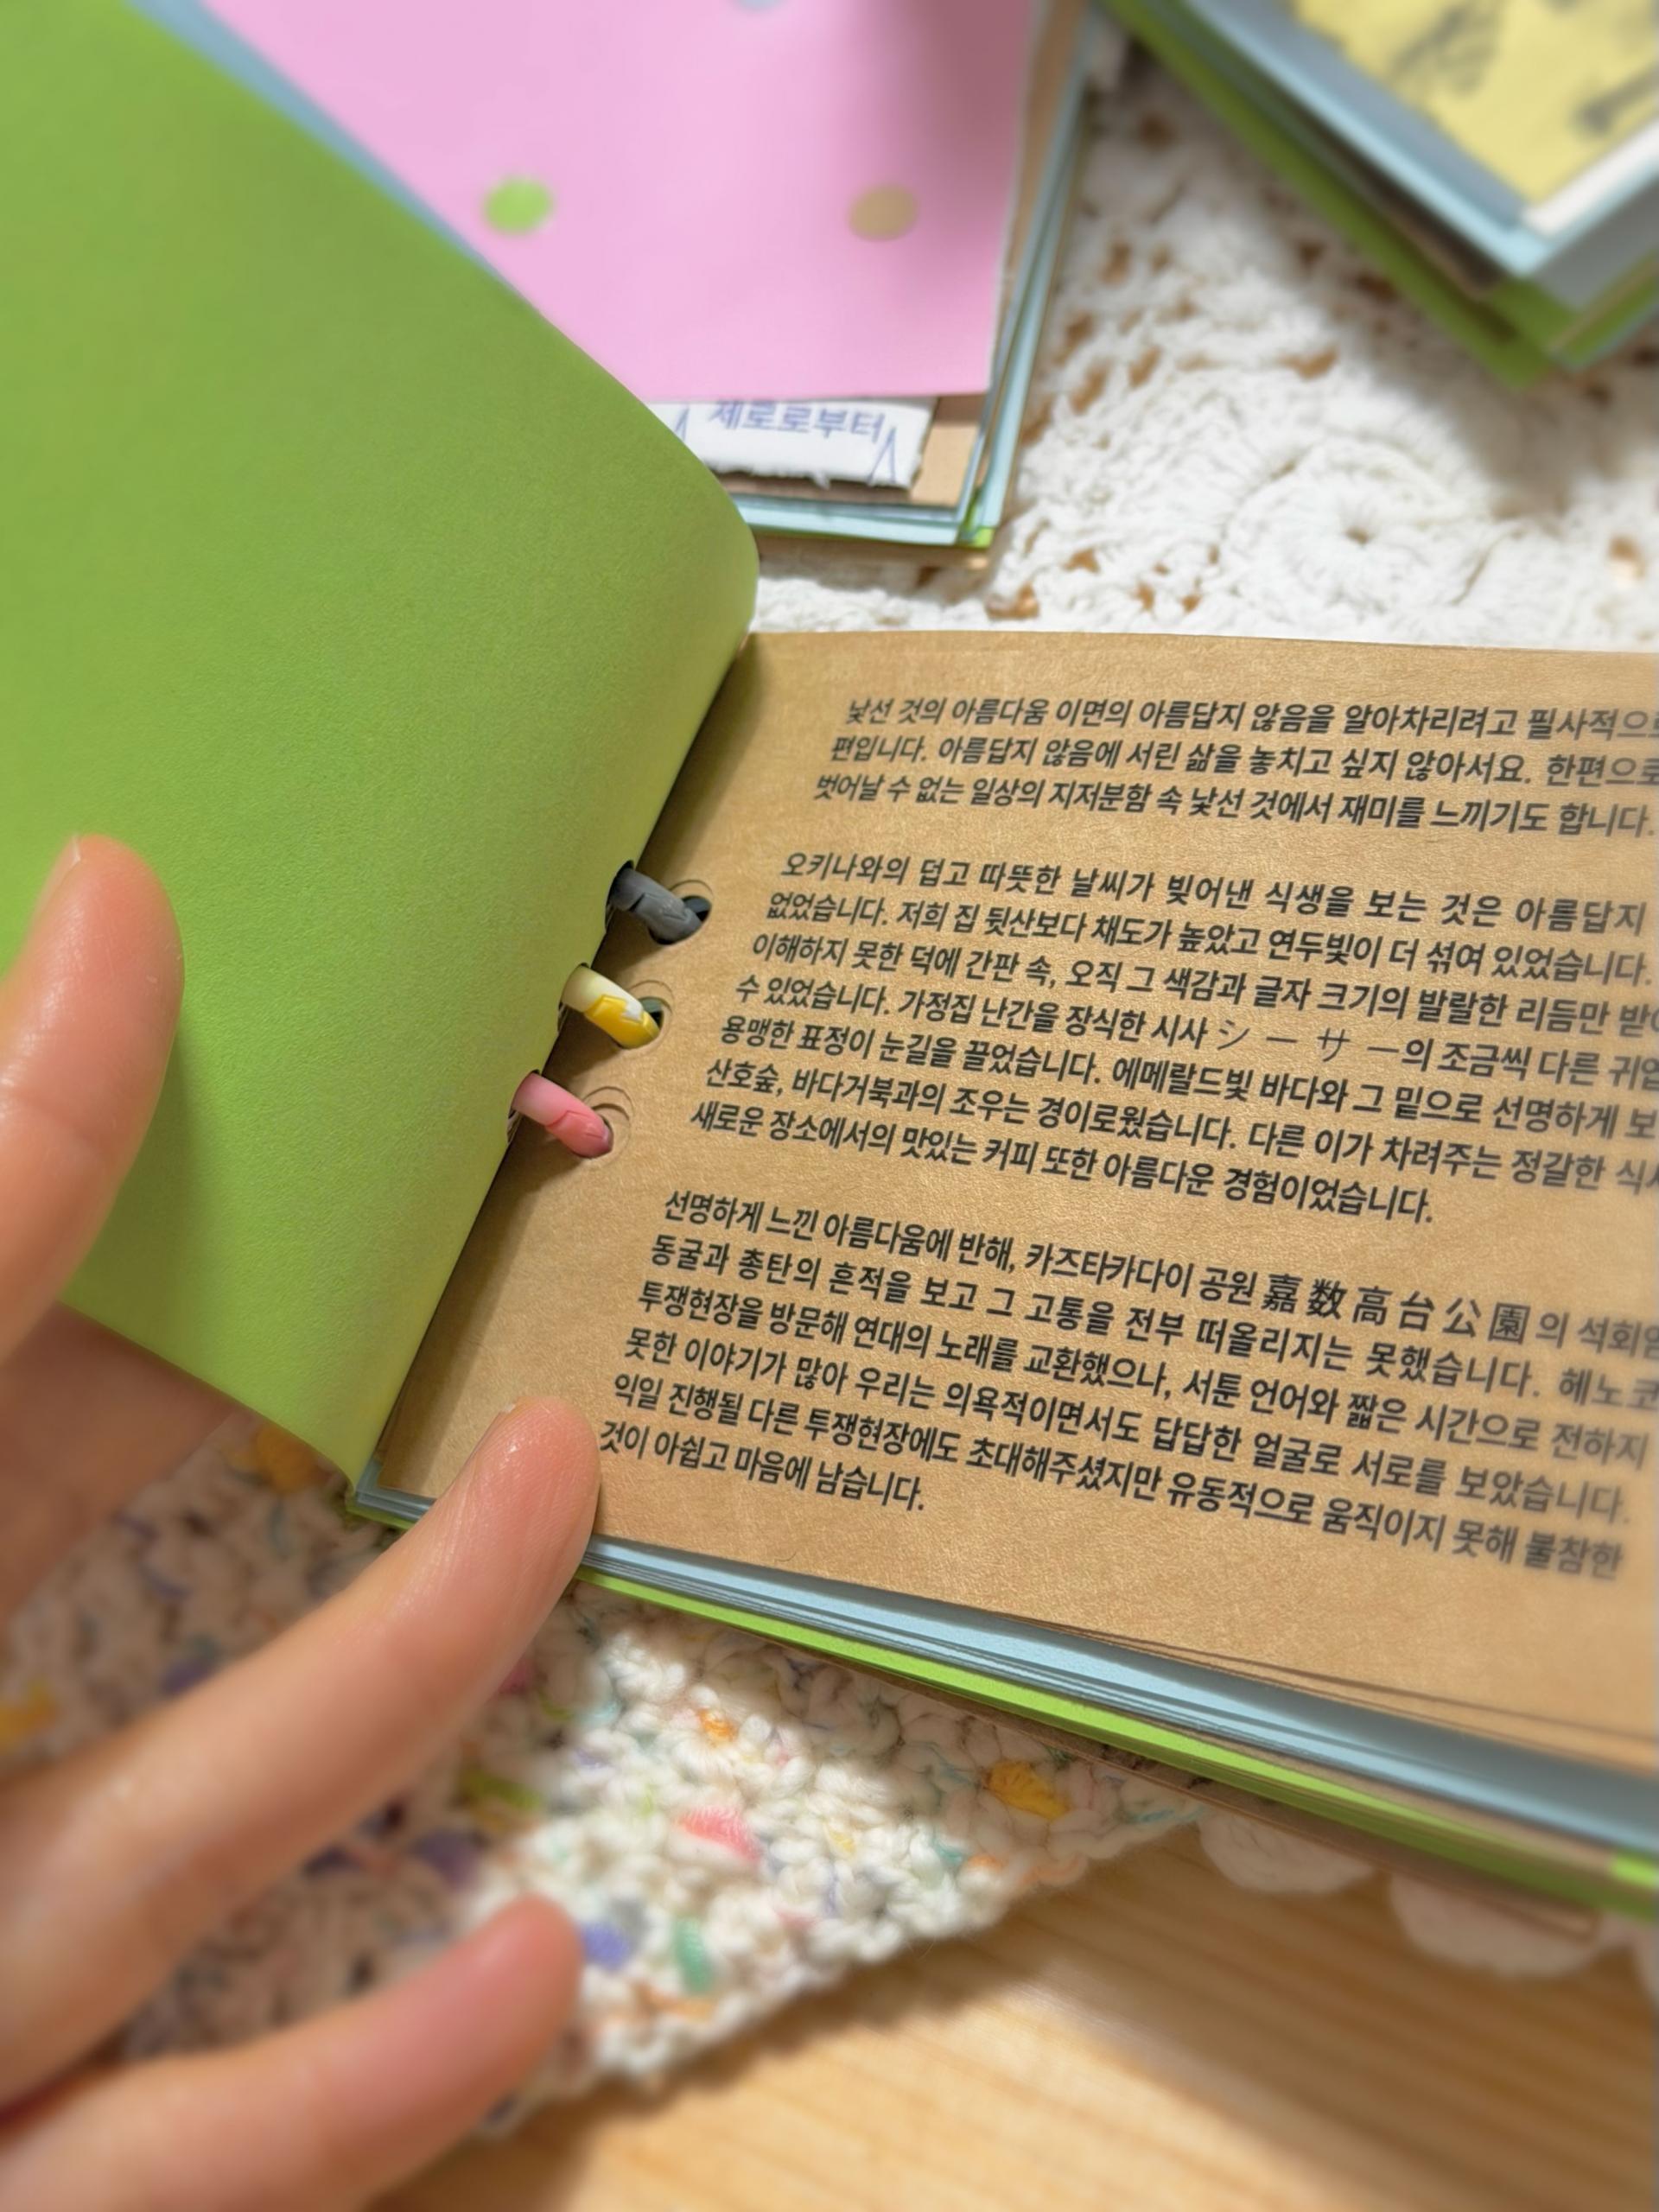 제로로부터
낯선 것의 아름다움 이면의 아름답지 않음을 알아차리려고 필사적으로
편입니다. 아름답지 않음에 서린 삶을 놓치고 싶지 않아서요. 한편으로
벗어날 수 없는 일상의 지저분함 속 낯선 것에서 재미를 느끼기도 합니다.
오키나와의 덥고 따뜻한 날씨가 빚어낸 식생을 보는 것은 아름답지
없었습니다. 저희 집 뒷산보다 채도가 높았고 연두빛이 더 섞여 있었습니다.
이해하지 못한 덕에 간판 속, 오직 그 색감과 글자 크기의 발랄한 리듬만 받아
수 있었습니다. 가정집 난간을 장식한 시사 シーサー의 조금씩 다른 귀엽
용맹한 표정이 눈길을 끌었습니다. 에메랄드빛 바다와 그 밑으로 선명하게 보
산호숲, 바다거북과의 조우는 경이로웠습니다. 다른 이가 차려주는 정갈한 식사
새로운 장소에서의 맛있는 커피 또한 아름다운 경험이었습니다.
선명하게 느낀 아름다움에 반해, 카즈타카다이 공원 嘉数高台公園의 석회암
동굴과 총탄의 흔적을 보고 그 고통을 전부 떠올리지는 못했습니다. 헤노코
투쟁현장을 방문해 연대의 노래를 교환했으나, 서툰 언어와 짧은 시간으로 전하지
못한 이야기가 많아 우리는 의욕적이면서도 답답한 얼굴로 서로를 보았습니다.
익일 진행될 다른 투쟁현장에도 초대해주셨지만 유동적으로 움직이지 못해 불참한
것이 아쉽고 마음에 남습니다.